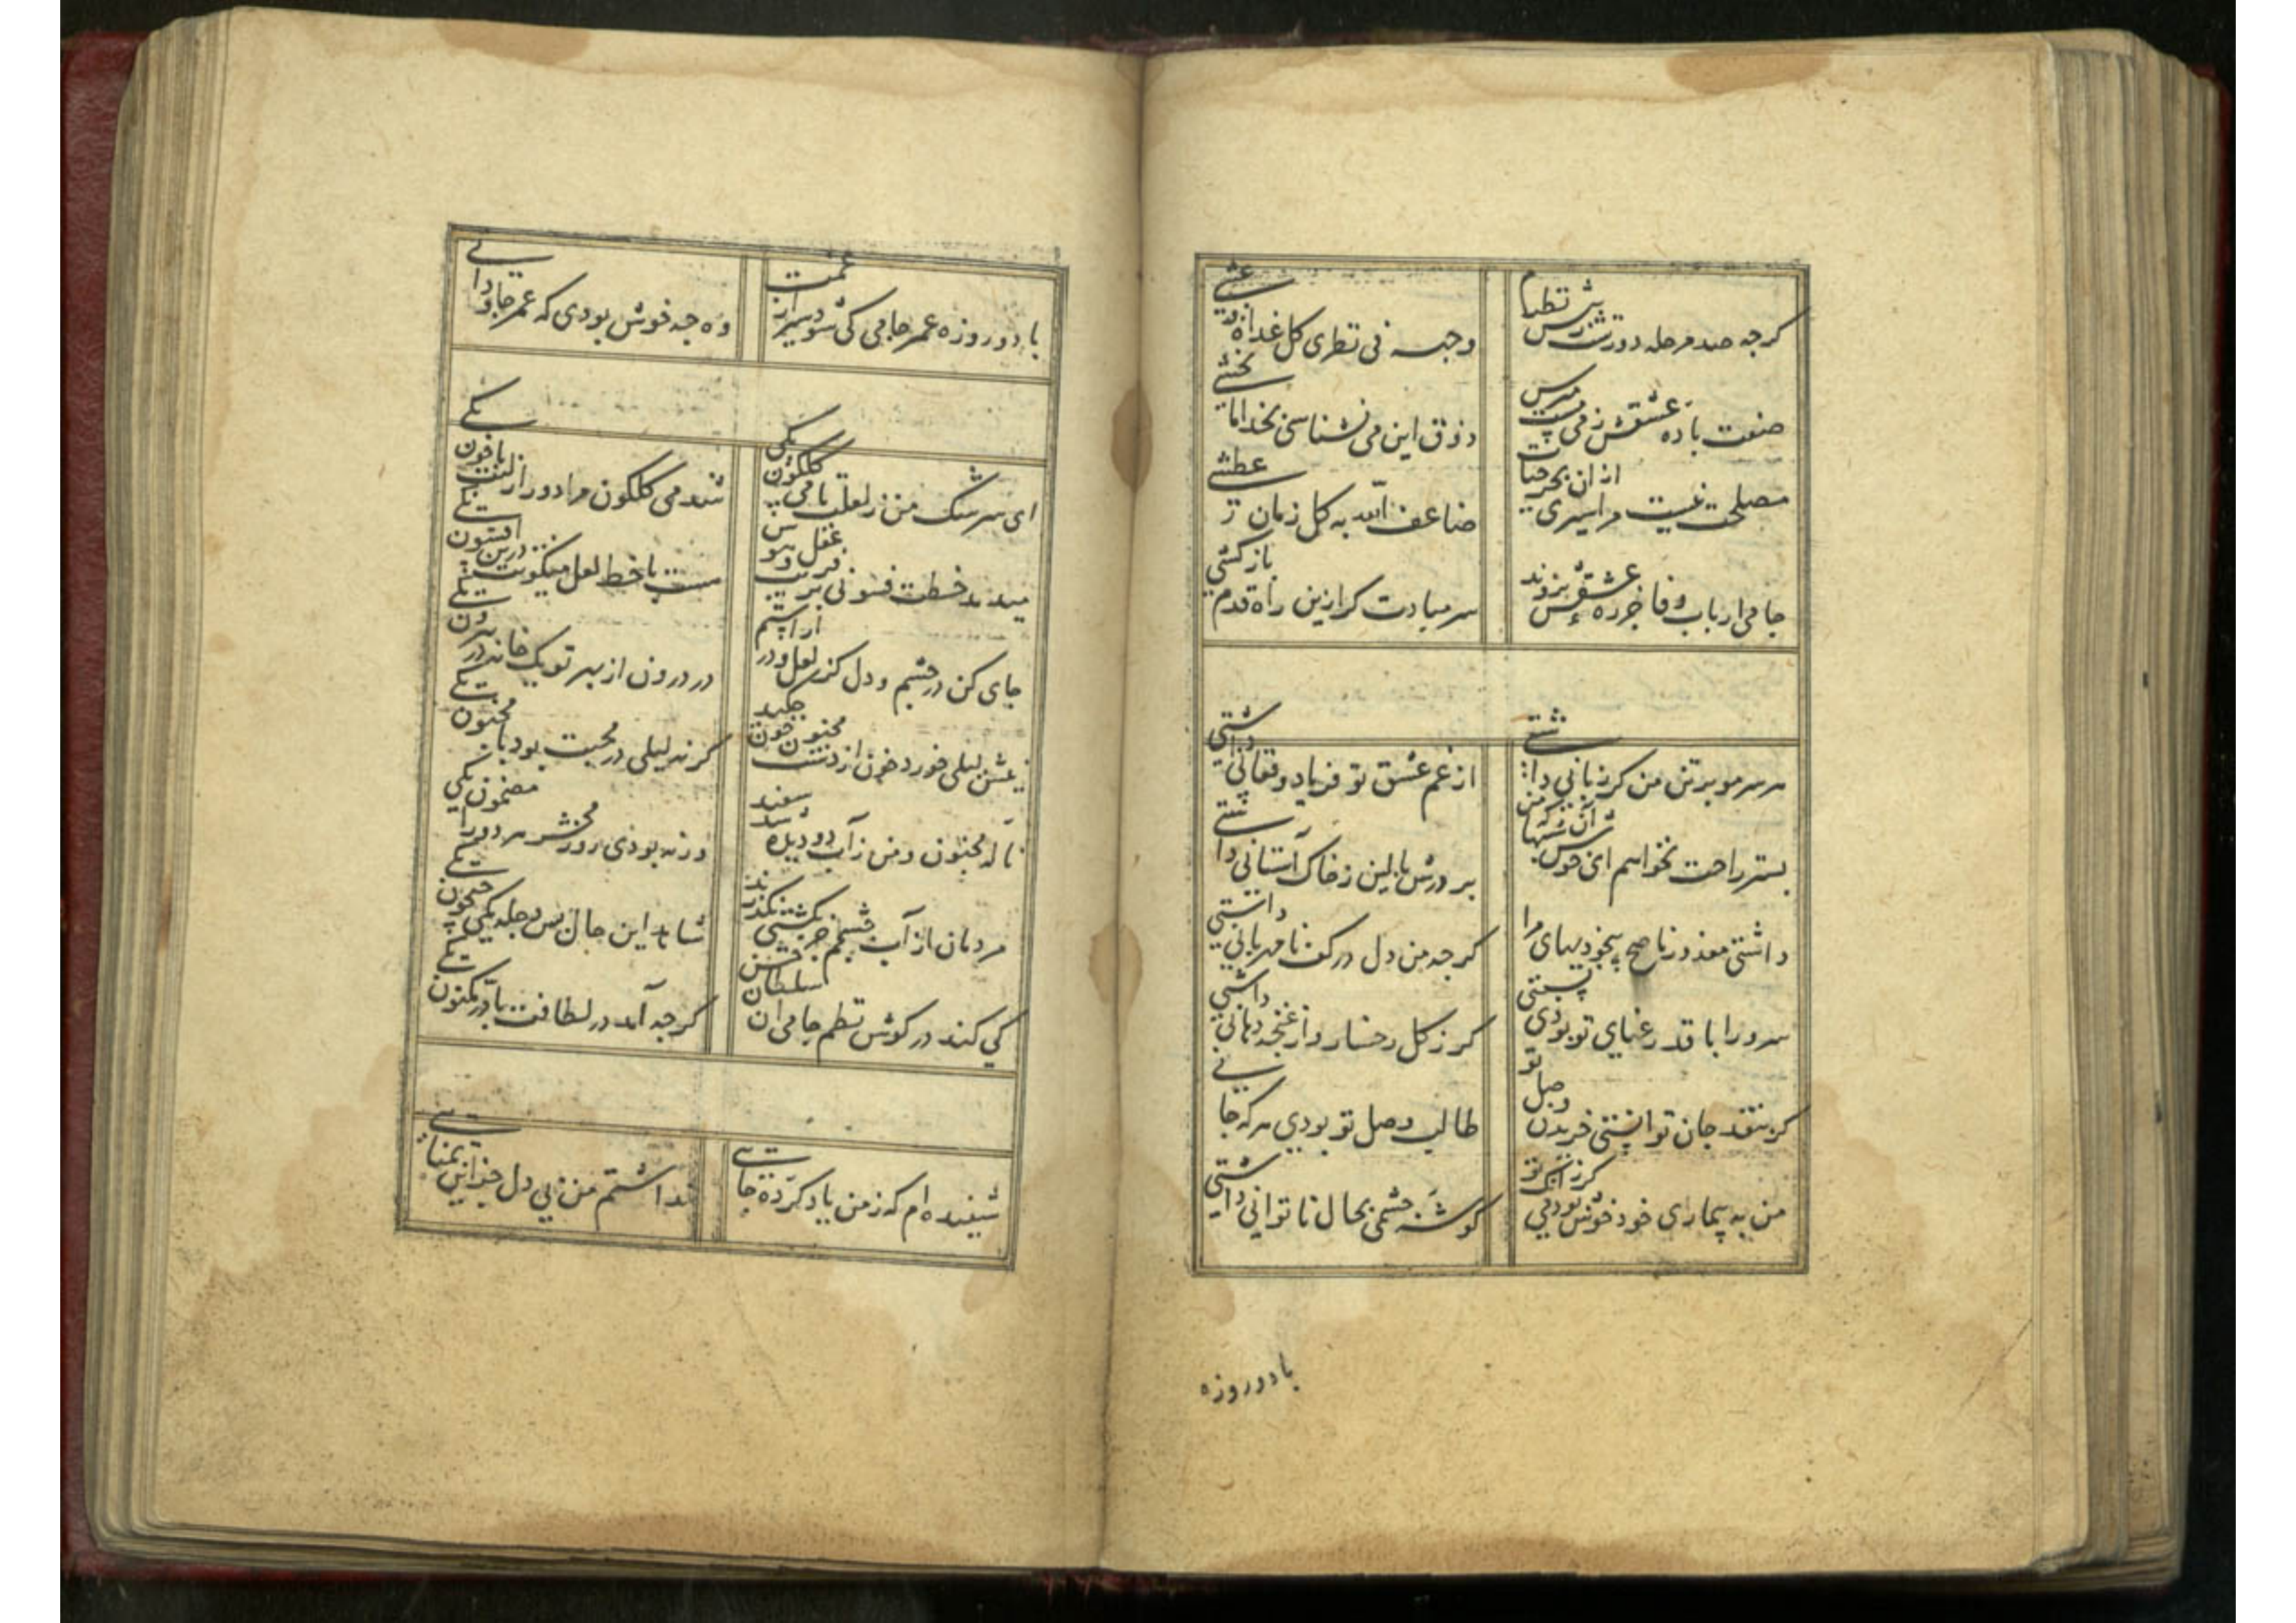 کرچه صد مرحله دورست ز پیش نظرم
وجهه فی نظری کل غداة و عشی
صفت باده عشقش ز من مست مپرس
ذوق این می نشناسی بخدا تا نچشی
مصلحت نیست مرا سیری از ان بحر حیات
ضاعف الله به کل زمان عطشی
جامی ارباب وفا جز ره عشقش نروند
سر مبادت کر ازین راه قدم بازکشی
هر سر مو بر تن من کر زبانی داشتی
از غم عشق تو فریاد و فغانی داشتی
بستر راحت نخواهم ای خوش آن شبها که من
بر درش بالین ز خاک آستانی داشتی
داشتی معذور ناصح بیخودیهای مرا
کرچه من دل در کف نامهربانی داشتی
سرو را با قد رعنای تو بودی نسبتی
کر ز کل رخسار و از غنچه دهانی داشتی
کر بنقد جان توانستی خریدن وصل تو
طالب وصل تو بودی هر که جانی
من به بیماری خود خوش بودمی کر زانک تو
کوشه چشمی بحال ناتوانی داشتی
با دو روزه
با دو روزه عمر جامی کی شود سیر از غمت
وه چه خوش بودی که عمر جاودانی
ای سرشک من ز لعلت با می کلکون یکی
شد می کلکون مرا دور از لبت با خون یکی
میدمد خطت فسونی بر فریب عقل و هوش
هست با خط لعل میکونت درین افسون یکی
جای کن در چشم و دل کز لعل و در آراستم
در درون از بهر تو یک خانه در بیرون یکی
نیش لیلی خورد و خون از دست مجنون چکید
کر نه لیلی در محبت بود با مجنون یکی
نامه مجنون و من ز آب دو دیده شد سفید
ورنه بودی روز محشر هر دو را مضمون یکی
مردمان از آب چشمم جز بکشتی نکذرند
شاهد این حال بس دجله یکی جیحون یکی
کی کند در کوش نظم جامی ان سلطان حسن
کرچه آمد در لطافت با در مکنون یکی
شنیده ام که ز من یاد کرده جایی
نداشتم من بی دل جز این تمنایی